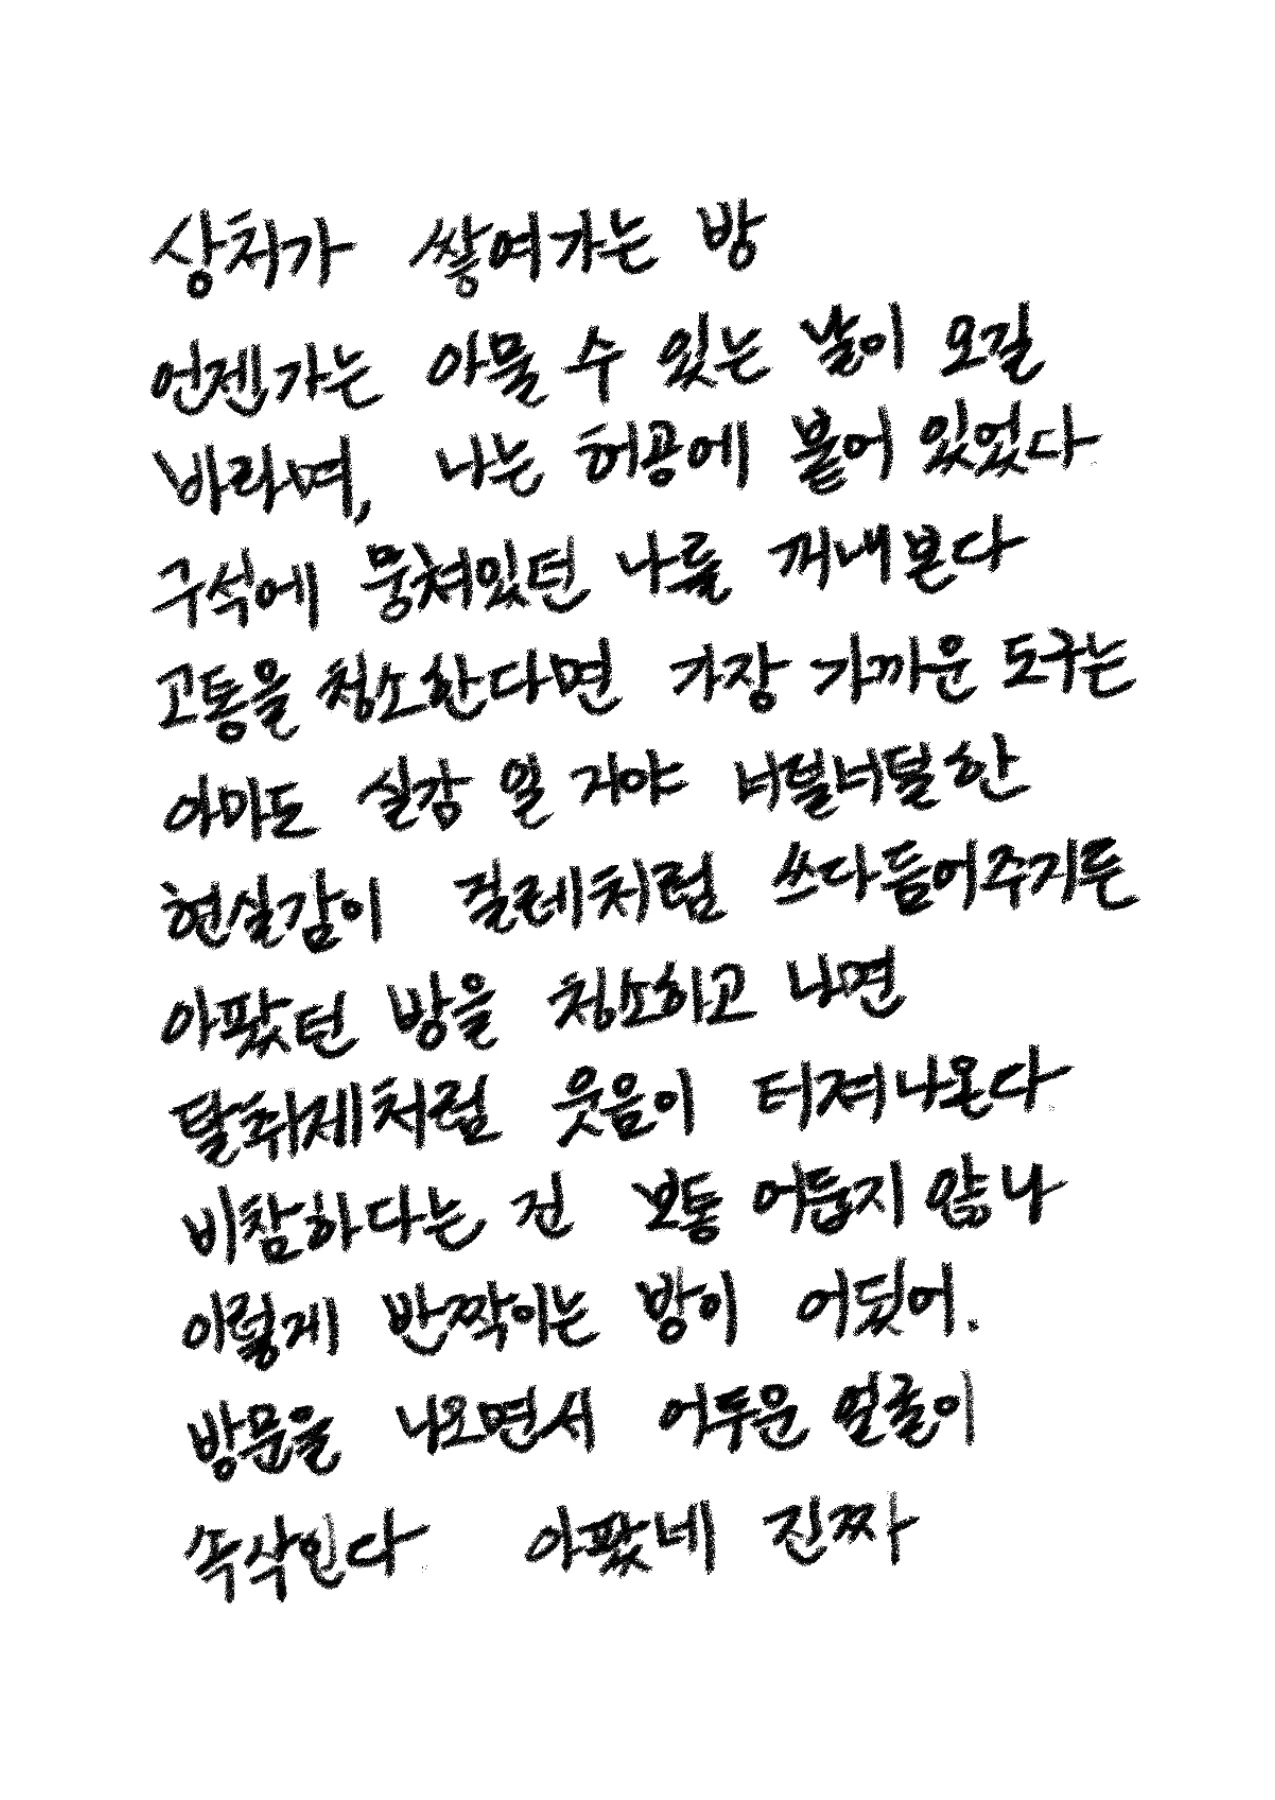 상처가 쌓여가는 방
언젠가는 아물 수 있는 날이 오길
바라며, 나는 허공에 붙어 있었다.
구석에 뭉쳐있던 나를 꺼내 본다
고통을 청소한다면 가장 가까운 도구는
아마도 실감 일 거야 너덜너덜 한
현실감이 걸레처럼 쓰다듬어주기든
아팠던 방을 청소하고 나면
탈취제처럼 웃음이 터져나온다.
비참하다는 건 보통 어둡지 않나
이렇게 반짝이는 방이 어딨어.
방문을 나오면서 어두운 얼굴이
속삭인다. 아팠네 진짜